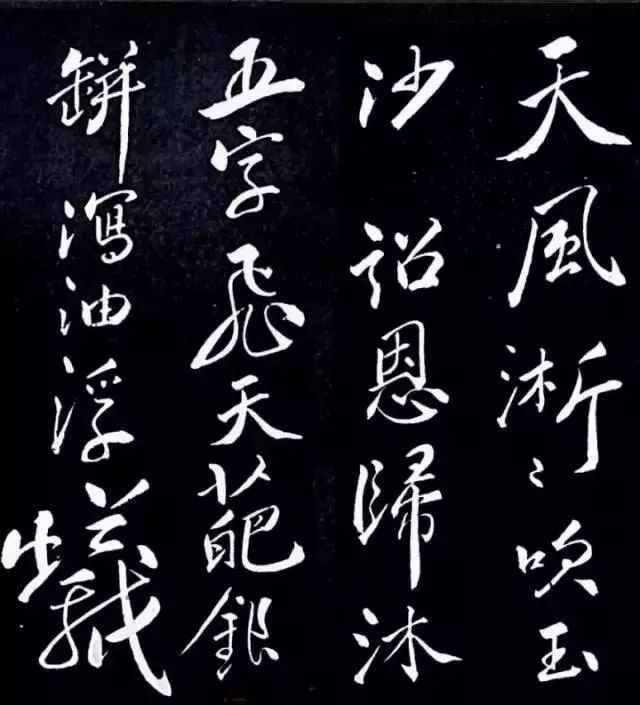 天風淅〻吹玉
沙詔恩歸沐
五字飛天葩銀
缾瀉油浮蟻